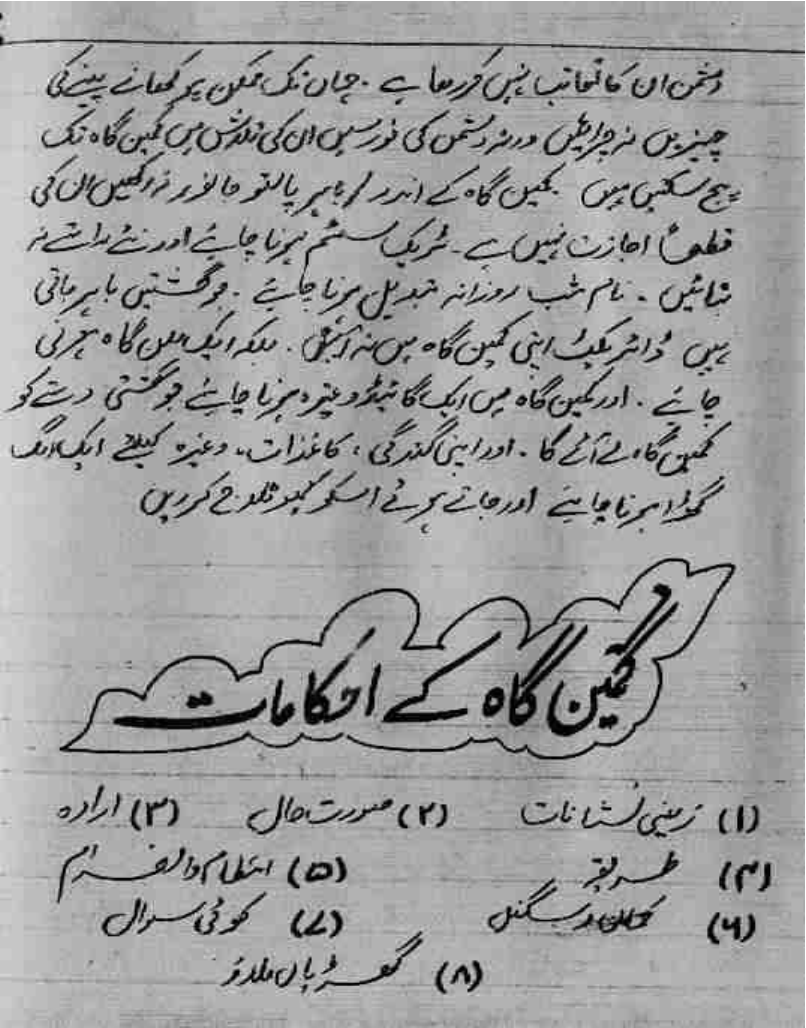 دشمن ان کا تعاقب نہیں کر رہا ہے ۔ جہاں تک ممکن ہو کھانے پینے کی
چیزیں نہ چرائیں ورنہ دشمن کی فورسیں ان کی تلاش میں کمین گاہ تک
پہنچ سکتیں ہیں ۔ کمین گاہ کے اندر / باہر پالتو جانور نہ رکھیں ان کی
قطعاً اجازت نہیں ہے ۔ ٹریک سسٹم ہونا چاہئے اور نئے راستے نہ
بنائیں ۔ نام شب روزانہ تبدیل ہونا چاہئے ۔ جو گشتیں باہر جاتی
ہیں ڈائریکٹ اپنی کمین گاہ میں نہ آئیں ۔ بلکہ ایک ملن گاہ ہونی
چاہئے ۔ اور کمین گاہ میں ایک گائیڈ وغیرہ ہونا چاہئے جو گشتی دستے کو
کمین گاہ لے آئے گا ۔ اور اپنی گندگی ، کاغذات ، وغیرہ کیلئے ایک الگ
گھڑا ہونا چاہئے اور جاتے ہوئے اسکو کیموفلاج کر دیں
کمین گاہ کے احکامات
(۱) زمینی نشانات (۲) صورت حال (۳) ارادہ
(۴) طریقہ (۵) انتظام و انصرام
(۶) کمان و سگنل (۷) کوئی سوال
(۸) گھڑیاں ملاؤ